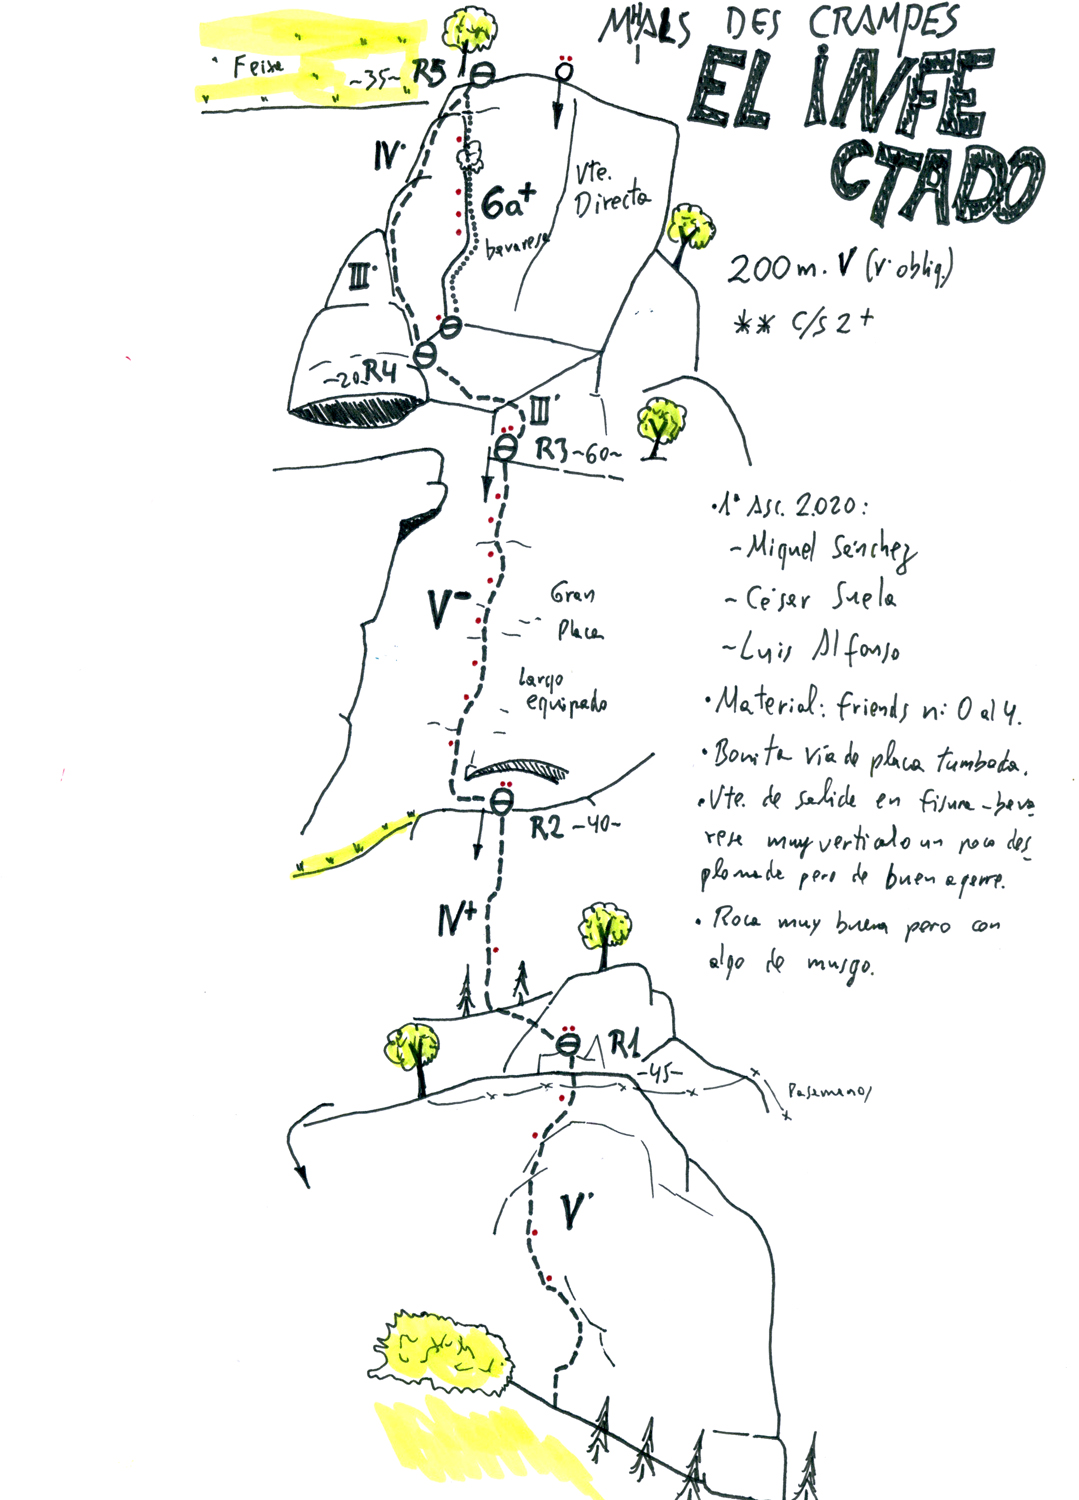 MHALS DES CRAMPES
EL INFE
CTADO
Feixa
~35~
R5
IV·
6a+
bavaresa
Vte.
Directa
200m. V (V·obliq.)
** c/s 2+
III·
~20~
R4
III·
R3 ~60~
·1ª Asc. 2.020:
~Miquel Sánchez
~César Suela
~Luis Alfonso
V-
Gran
Placa
largo
equipado
·Material: friends n: 0 al 4.
·Bonita vía de placa tumbada.
·Vte. de salida en fisura-bava
resa muy vertical o un poco des
plomada pero de buen agarre.
R2 ~40~
IV+
·Roca muy buena pero con
algo de musgo.
R1
~45~
Pasamanos
V·